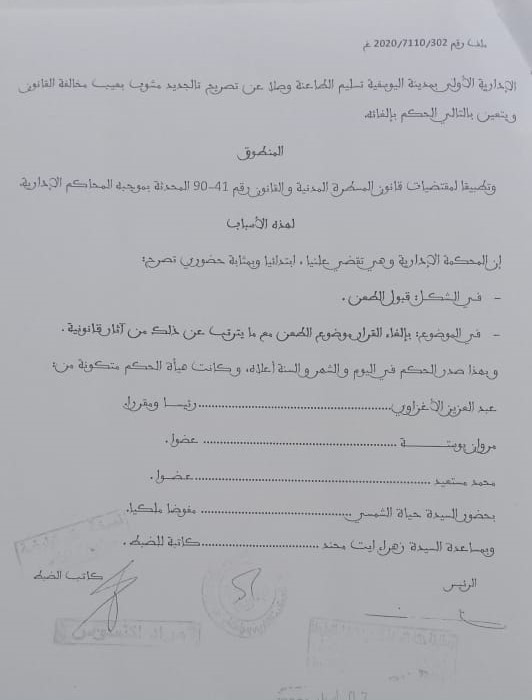 ملف رقم 2020/7110/302 غم
الإدارية الأولى بمدينة اليوسفية تسليم الطاعنة وصلا عن تصريح تالجديد مشوب بعيب مخالفة القانون
ويتعين بالتالي الحكم بإلغائه.
المنطوق
وتطبيقا لمقتضيات قانون المسطرة المدنية والقانون رقم 41-90 المحدثة بموجبه المحاكم الإدارية.
لهذه الأسباب
إن المحكمة الإدارية وهي تقضي علنيا، ابتدائيا وبمثابة حضوري تصرح:
- في الشكل: قبول الطعن .
- في الموضوع: بإلغاء القرار موضوع الطعن مع ما يترتب عن ذلك من آثار قانونية .
وبهذا صدر الحكم في اليوم والشهر والسنة أعلاه، وكانت هيأة الحكم متكونة من:
عبد العزيز الأغزاوي..............................................رئيسا ومقررا.
مروان بويتـــــة .................................................. عضوا.
محمد مستعيد ..........................................................عضوا.
بحضور السيدة حياة الشمسي...................................... مفوضا ملكيا.
وبمساعدة السيدة زهراء ايت محند .............................كاتبة للضبط .
الرئيس
كاتب الضبط